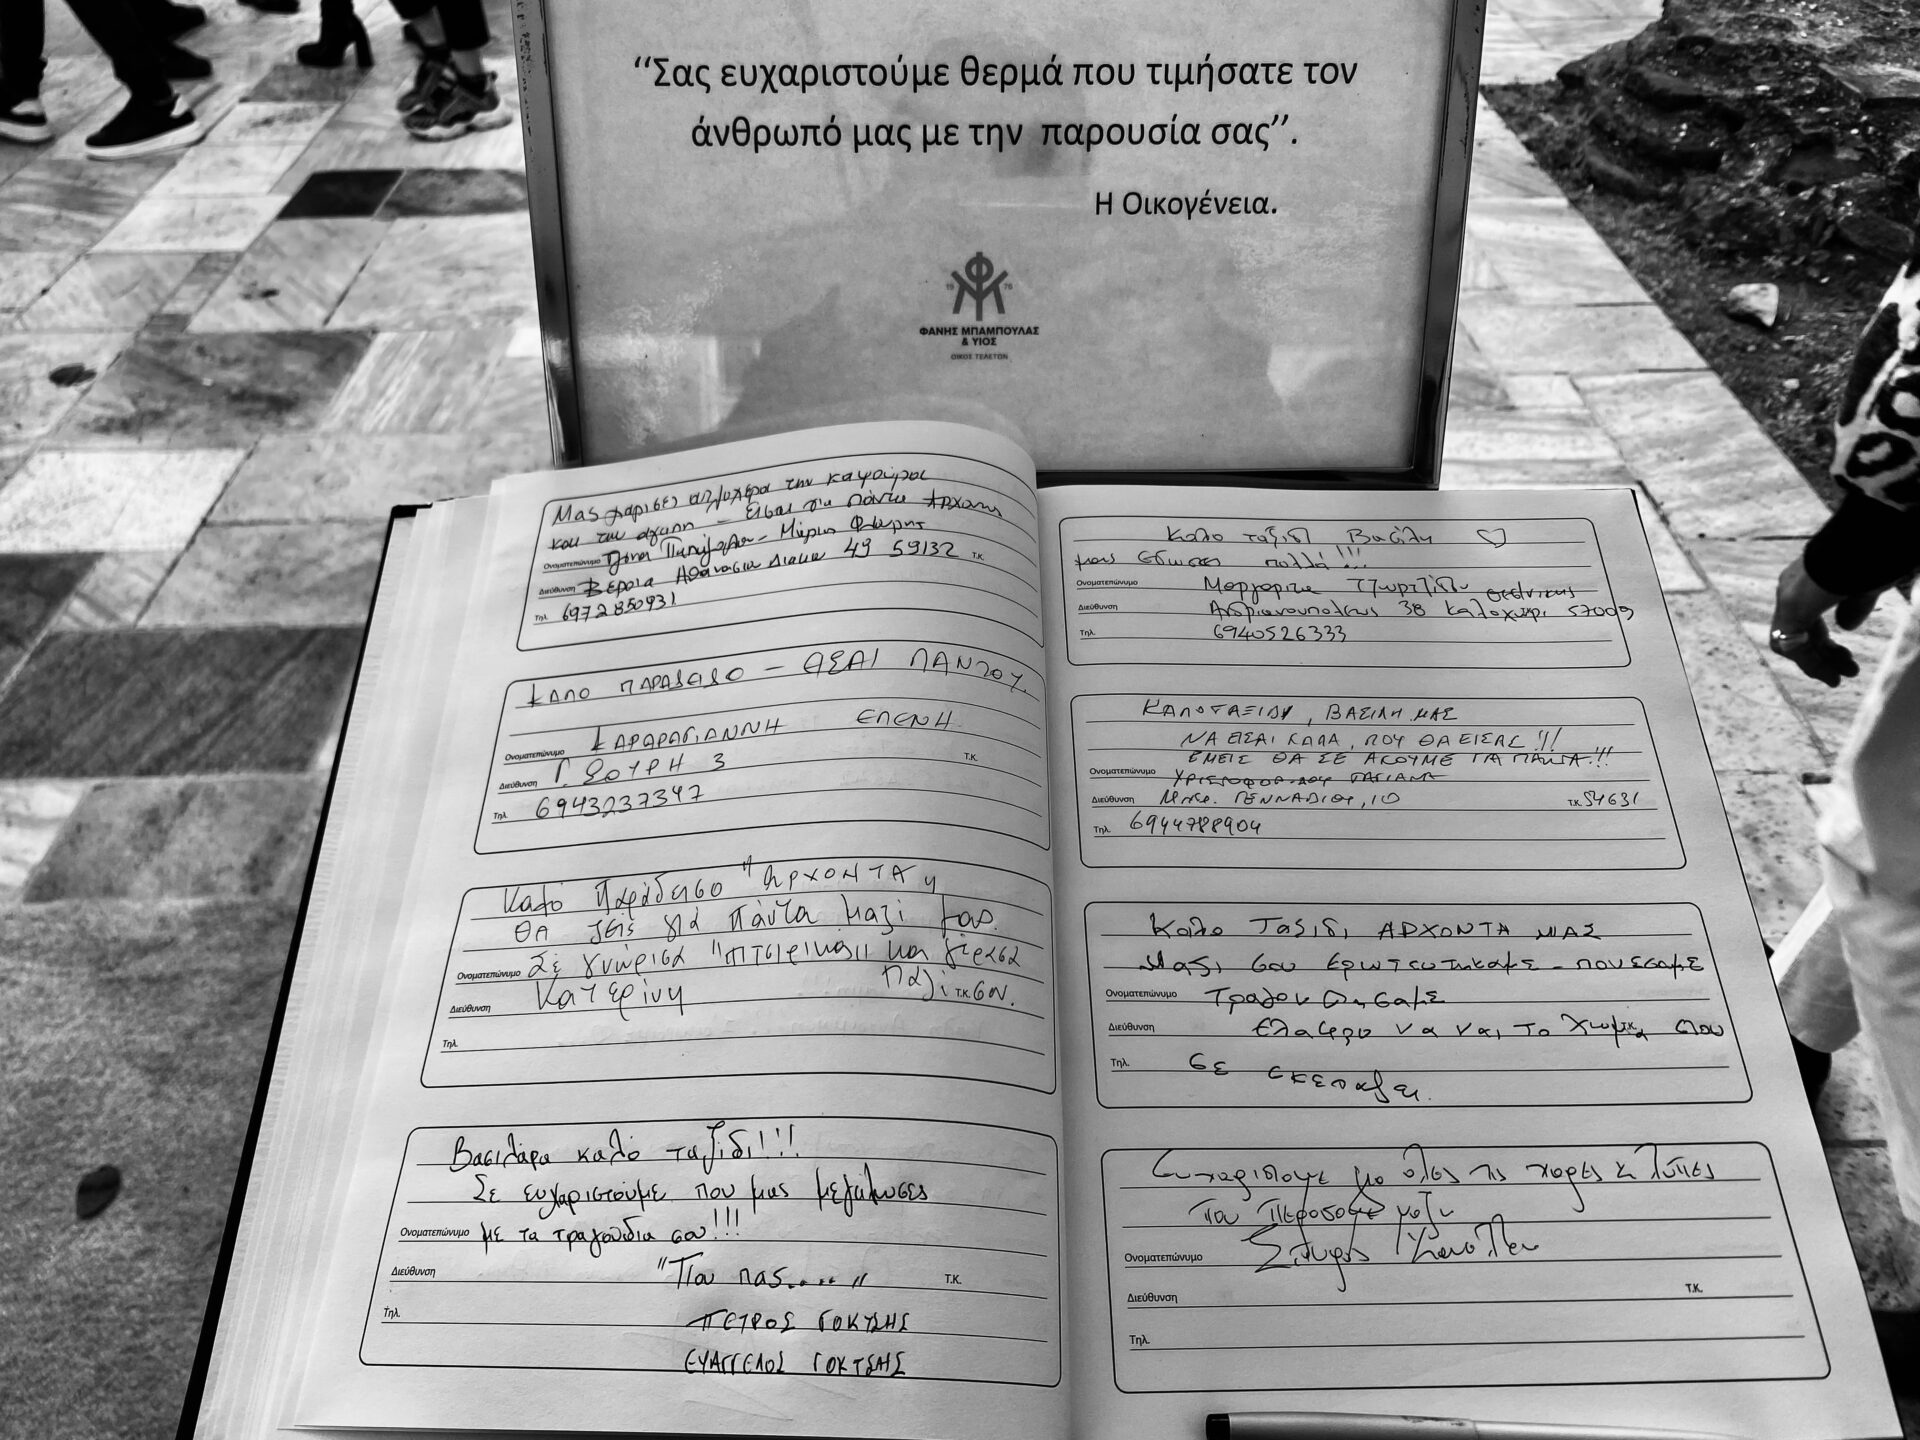 “Σας ευχαριστούμε θερμά που τιμήσατε τον
άνθρωπό μας με την παρουσία σας”.
Η Οικογένεια.
19 76
ΦΑΝΗΣ ΜΠΑΜΠΟΥΛΑΣ
& ΥΙΟΣ
ΟΙΚΟΣ ΤΕΛΕΤΩΝ
Μας χάρισες απλόχερα την καψούρα
και την αγάπη - είσαι για πάντα Άρχοντας
Ονοματεπώνυμο
Διεύθυνση Βέροια Αθανασίου Διάκου 49 59132 Τ.Κ.
Τηλ. 6972850931
ΚΑΛΟ ΠΑΡΑΔΕΙΣΟ - ΕΙΣΑΙ ΠΑΝΤΟΥ.
Ονοματεπώνυμο ΚΑΡΑΓΙΑΝΝΗ ΕΛΕΝΗ
Διεύθυνση Γ. ΣΟΥΡΗ 3 Τ.Κ.
Τηλ. 6943237347
Καλό Παράδεισο "ΑΡΧΟΝΤΑ"
ΘΑ ζεις γιά πάντα μαζί μας.
Ονοματεπώνυμο Σε γνώρισα "πιτσιρικά" και γέρασα
Διεύθυνση Κατερίνη μαζί Τ.Κ. σου.
Τηλ.
Βασιλάρα καλό ταξίδι!!!
Σε ευχαριστούμε που μας μεγάλωσες
Ονοματεπώνυμο με τα τραγούδια σου!!!
Διεύθυνση "Που πας...." Τ.Κ.
Τηλ. ΠΕΤΡΟΣ ΓΟΚΤΣΗΣ
ΕΥΑΓΓΕΛΟΣ ΓΟΚΤΣΗΣ
Καλο ταξίδι Βασίλη ♡
μας έδωσες πολλά!!!
Ονοματεπώνυμο Μαργαρίτα
Διεύθυνση Ανδριανουπόλεως 38 Καλοχώρι 57009
Τηλ. 6940526333
ΚΑΛΟ ΤΑΞΙΔΙ, ΒΑΣΙΛΗ ΜΑΣ
ΝΑ ΕΙΣΑΙ ΚΑΛΑ, ΠΟΥ ΘΑ ΕΙΣΑΙ!!!
ΕΜΕΙΣ ΘΑ ΣΕ ΑΚΟΥΜΕ ΓΙΑ ΠΑΝΤΑ!!!
Ονοματεπώνυμο ΧΡΙΣΤΟΦΟΡΙΔΟΥ ΤΑΤΙΑΝΑ
Διεύθυνση ΓΕΝΝΑΔΙΟΥ, 10 Τ.Κ. 54631
Τηλ. 6944788904
Καλο Ταξιδι ΑΡΧΟΝΤΑ ΜΑΣ
Μαζι σου ερωτευτηκαμε - πονεσαμε
Ονοματεπώνυμο Τραγουδησαμε
Διεύθυνση Ελαφρυ να ναι το Χωμα που
Τηλ. σε σκεπαζει.
Ευχαριστουμε για ολες τις χαρες & λύπες
που περασαμε μαζι
Ονοματεπώνυμο
Διεύθυνση Τ.Κ.
Τηλ.